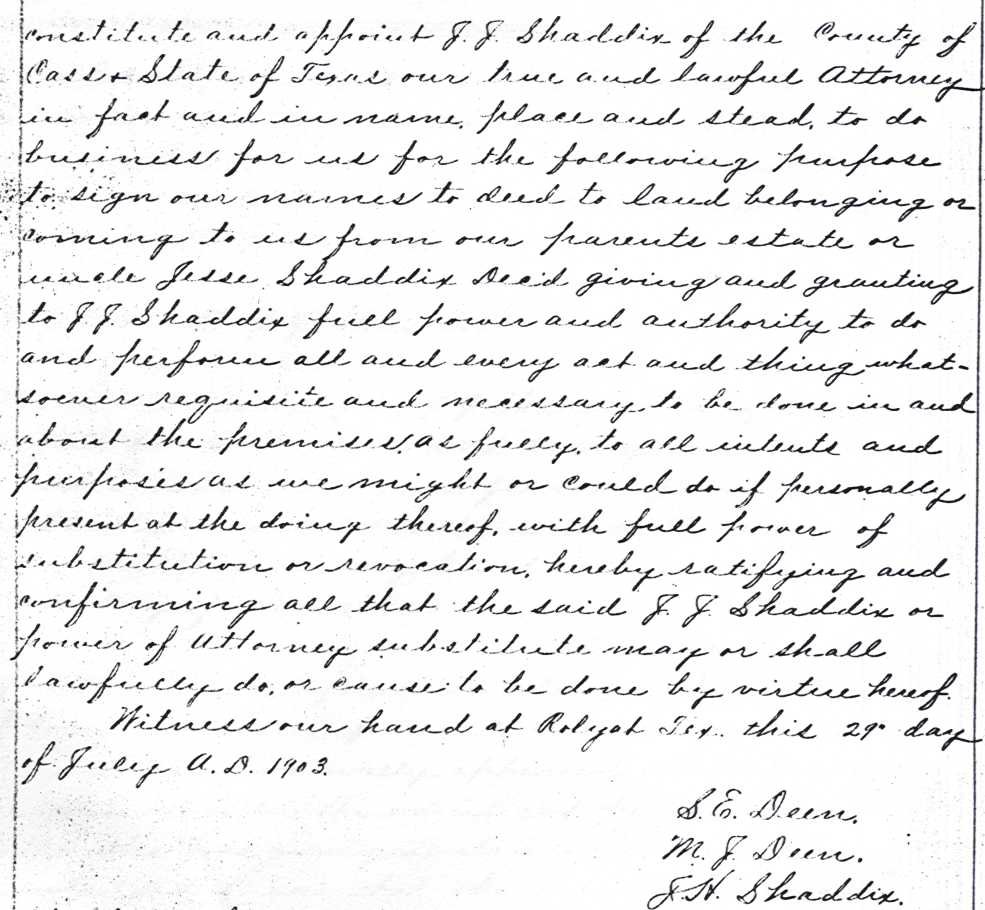 constitute and appoint J. J. Shaddix of the County of
Cass & State of Texas our true and lawful Attorney
in fact and in name, place and stead, to do
business for us for the following purpose
to sign our names to deed to land belonging or
coming to us from our parents estate or
uncle Jesse Shaddix Dec'd giving and granting
to J J. Shaddix full power and authority to do
and perform all and every act and thing what-
soever requisite and necessary to be done in and
about the premises, as fully, to all intents and
purposes as we might or could do if personally
present at the doing thereof, with full power of
substitution or revocation, hereby ratifying and
confirming all that the said J. J. Shaddix or
power of Attorney substitute may or shall
lawfully do, or cause to be done by virtue hereof.
Witness our hand at Rolyat Tex. this 29" day
of July A.D. 1903.
S. E. Deen.
M. J. Deen.
J. H. Shaddix.